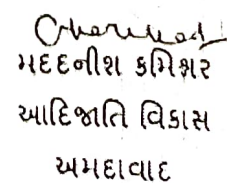 મદદનીશ કમિશ્નર
આદિજાતિ વિકાસ
અમદાવાદ